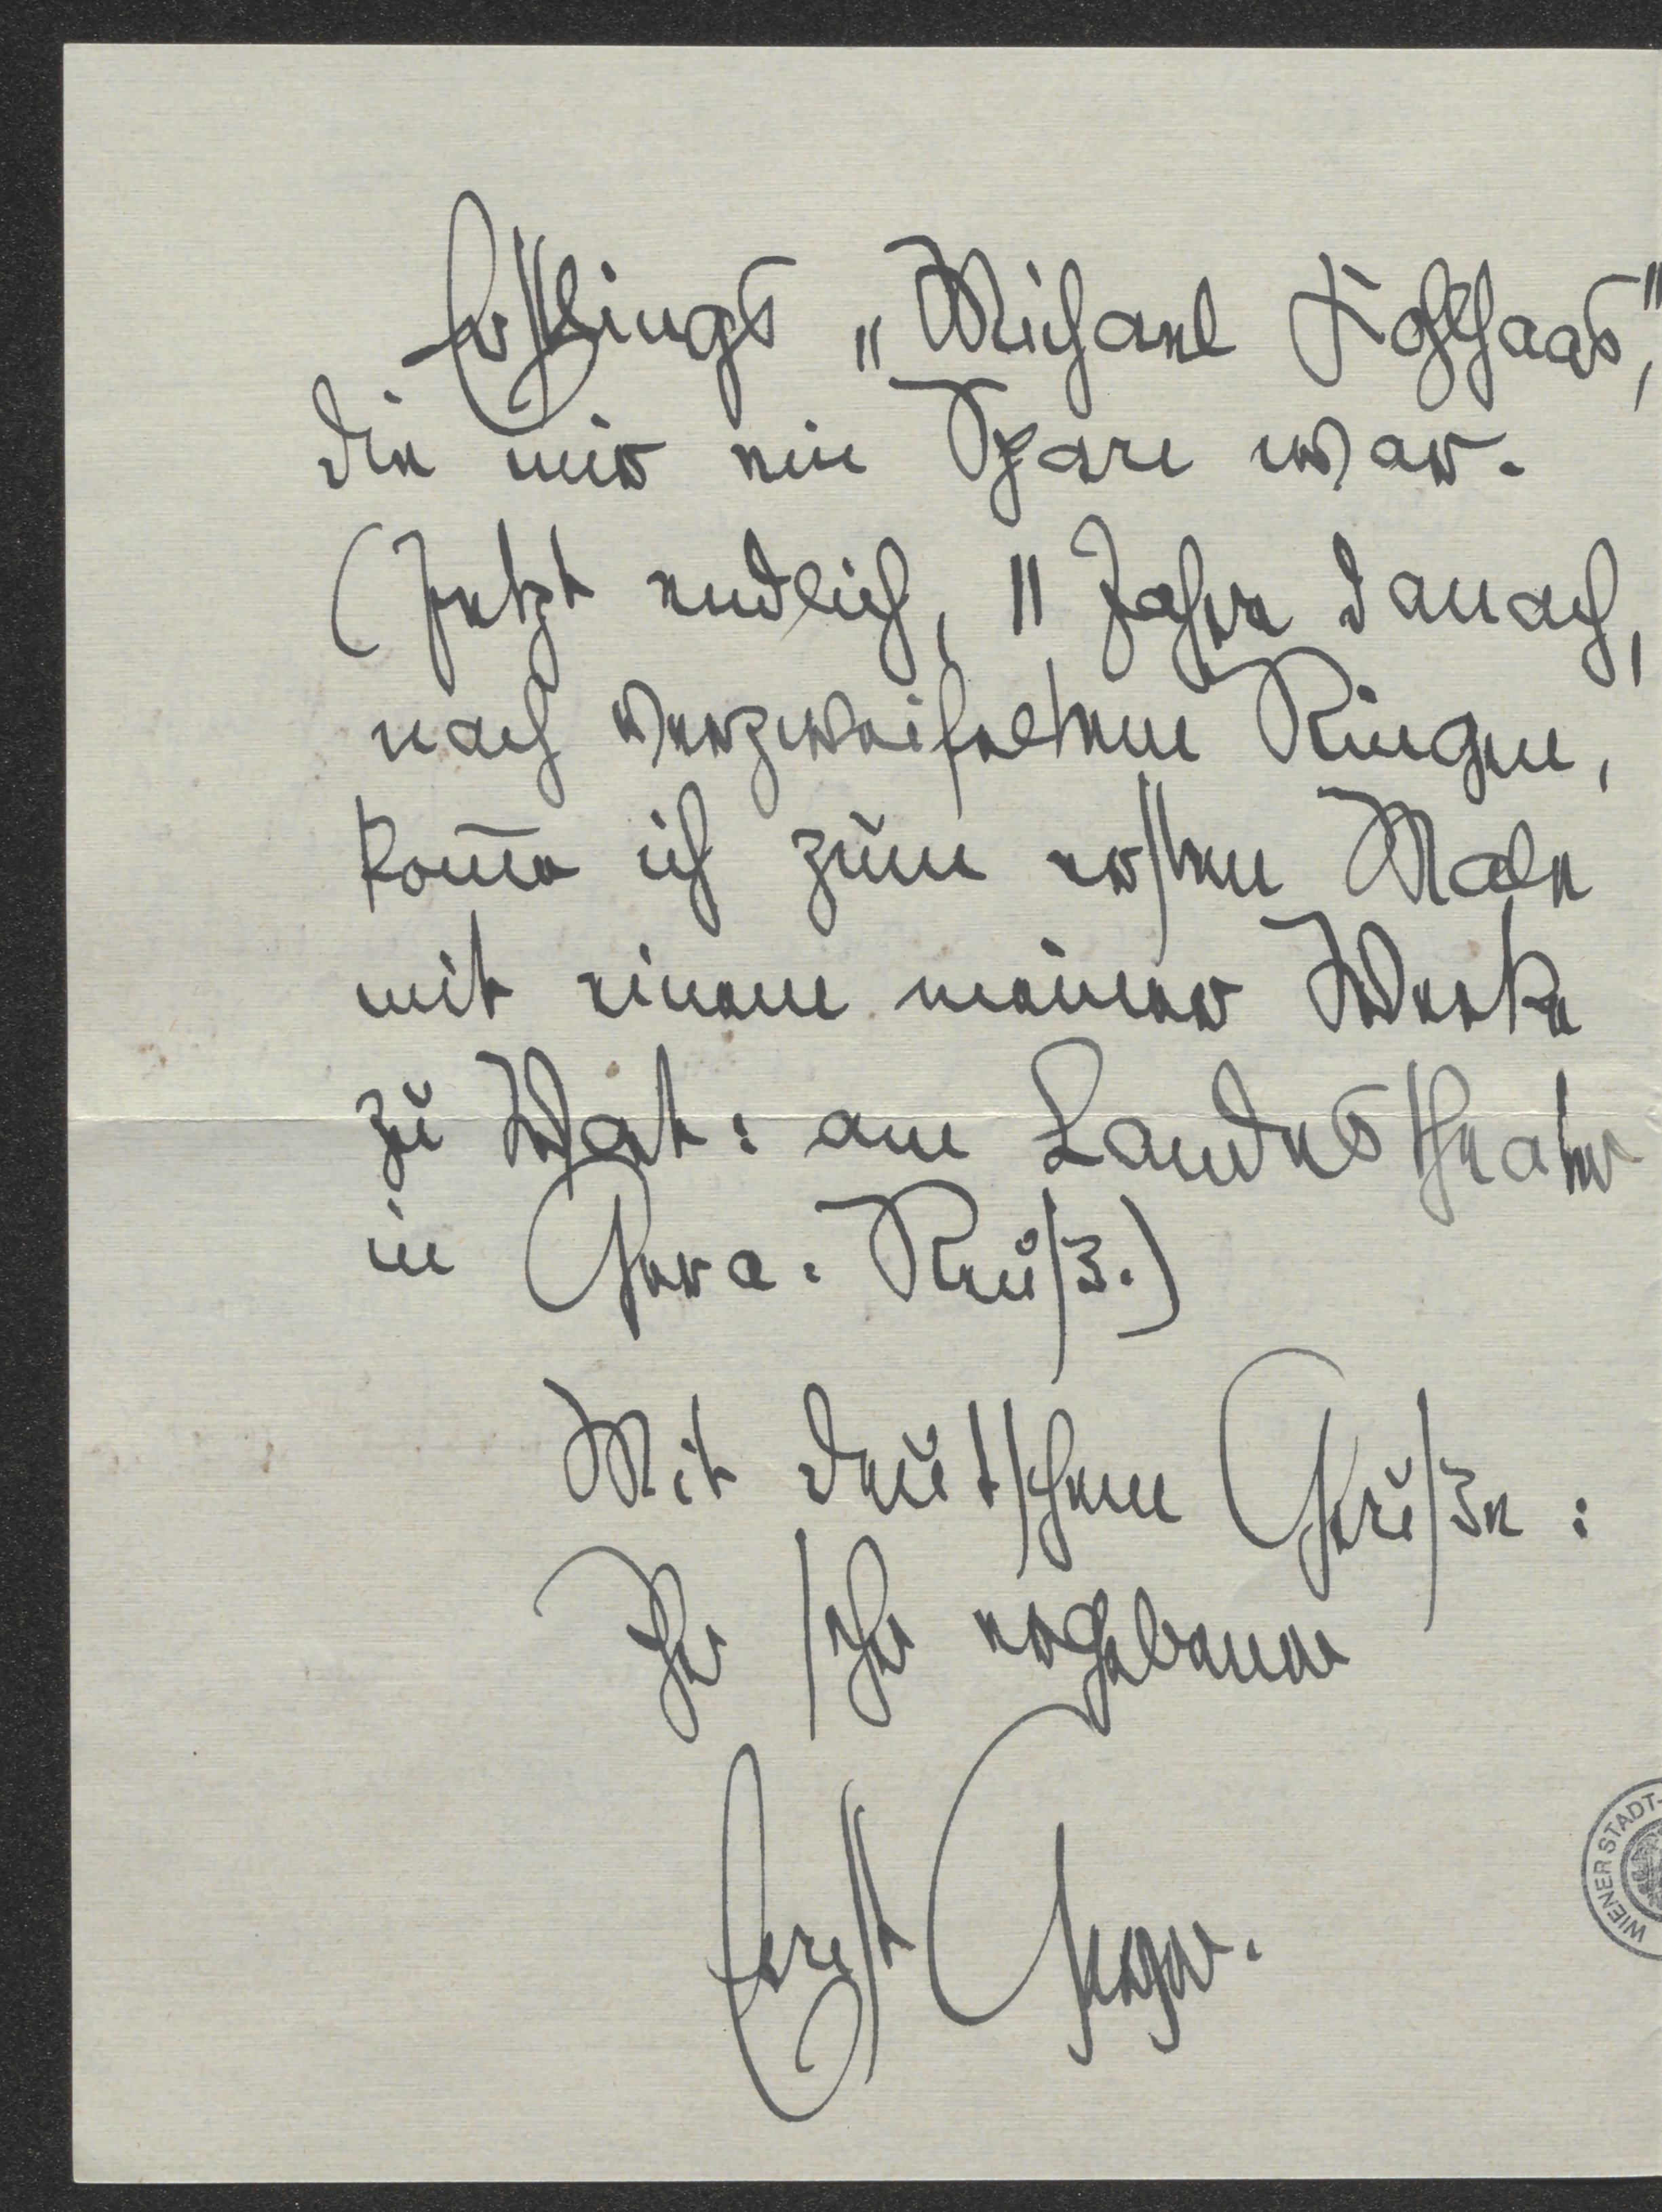 Erstlings „Michael Kohlhaas",
die mir ein war.
(Jetzt endlich, 11 Jahre danach,
nach verzweifeltem Ringen,
kom̄e ich zum ersten Male
mit einem meiner Werke
zu Wort: am Landestheater
in Gera. Reuß.)
Mit deutschem Gruße:
Ihr sehr ergebener
Ernst Geyer.
WIENER STADT-